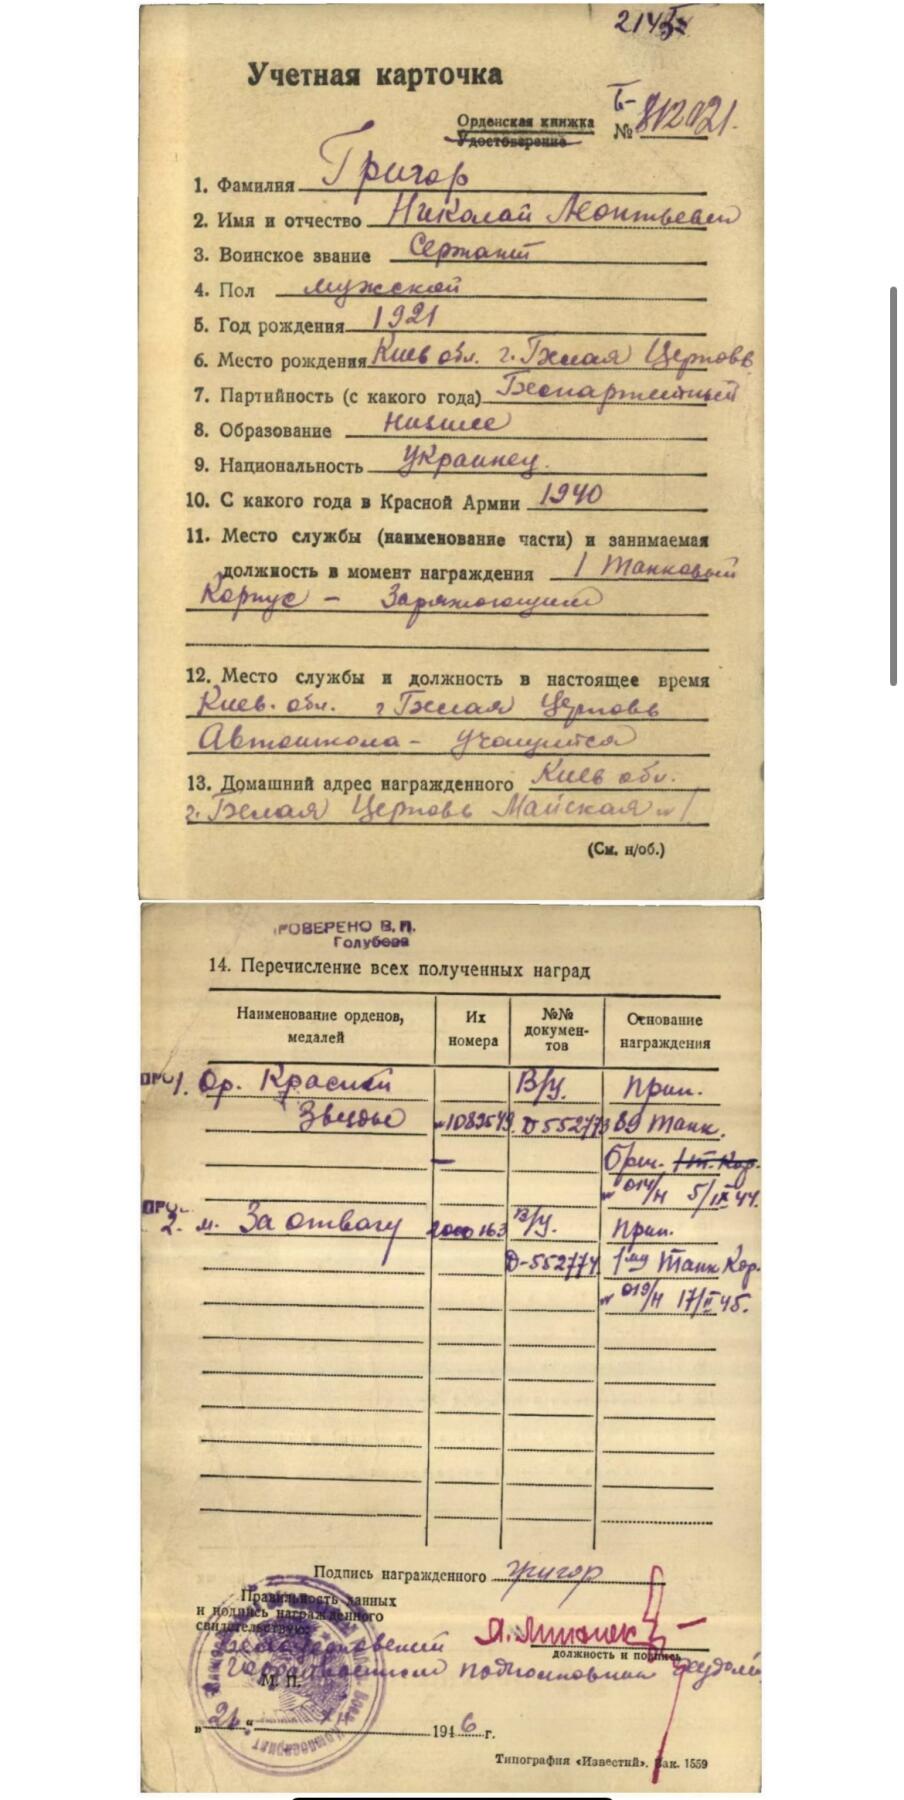 Учетная карточка
Орденская книжка
Удостоверение
Б-
№ 812021.
1. Фамилия Григор
2. Имя и отчество Николай Леонтьевич
3. Воинское звание Сержант
4. Пол мужской
5. Год рождения 1921
6. Место рождения Киев обл. г. Белая Церковь
7. Партийность (с какого года) Беспартийный
8. Образование низшее
9. Национальность Украинец.
10. С какого года в Красной Армии 1940
11. Место службы (наименование части) и занимаемая
должность в момент награждения 1 Танковый
Корпус – Заряжающий
12. Место службы и должность в настоящее время
Киев. обл. г Белая Церковь
Автошкола – учащийся
13. Домашний адрес награжденного Киев обл.
г. Белая Церковь Майская № 1
(См. н/об.)
РОВЕРЕНО В. П.
Голубева
14. Перечисление всех полученных наград
Наименование орденов, медалей
Их номера
№№ докумен-тов
Основание награждения
1. Ор. Красной В/у. прик.
Звезды № Д-552773 89 танк.
бриг. 1 т. Кор.
№ 014/н 5/IX 44.
2. м. За отвагу В/у. прик.
Д-552774 1му Танк Кор.
№ 019/н 17/II 45.
Подпись награжденного Григор
Правильность данных
и подпись награжденного
свидетельствую:
должность и подпись
М. П.
1946 г.
Типография «Известий». Зак. 1559